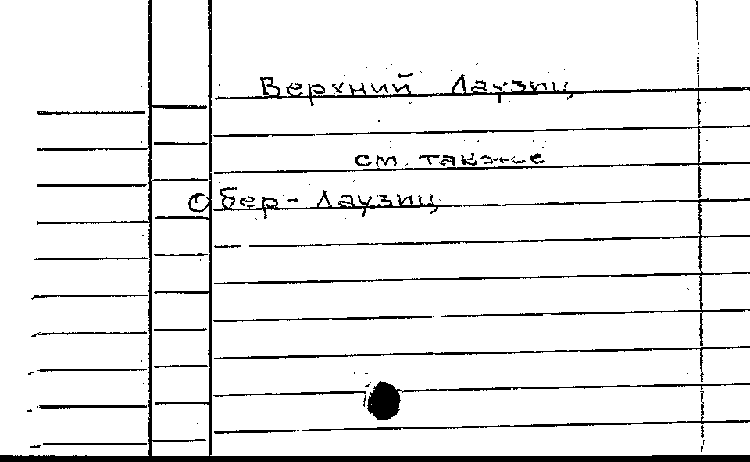 Верхний Лаузиц
см. также
Обер-Лаузиц